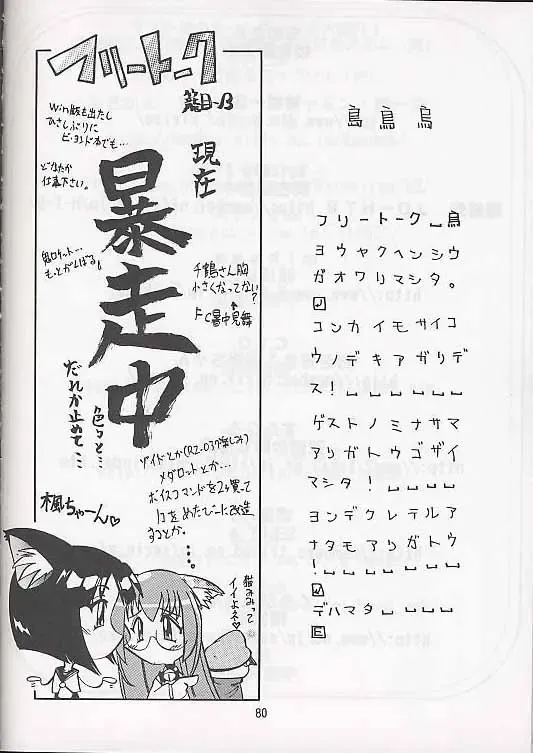 フリートーク
籠目-B
現在
暴走中
Win版も出たし
ひさしぶりに
ビヨンド本でも…
どなたか
仕事下さい。
鬼ロケット…
もっとがんばる。
千鶴さん胸
小さくなってない?
FC暑中見舞
だれか止めて…
色々と…
ゾイドとか(RZ-037楽しみ)
メダロットとか…
ボイスコマンドを2ヶ買って
1コをめたびーに改造
するとか。
…。
楓ちゃーん♡
猫みみって
イイよネ♡
島 島 島
フリートーク␣島
ヨウヤクヘンシウ
ガオワリマシタ。
コンカイモサイコ
ウノデキアガリデ
ス!␣␣␣␣␣␣
ゲストノミナサマ
アリガトウゴザイ
マシタ!␣␣␣␣
ヨンデクレテルア
ナタモアリガトウ
!␣␣␣␣␣␣␣
デハマタ␣␣␣␣
E
80